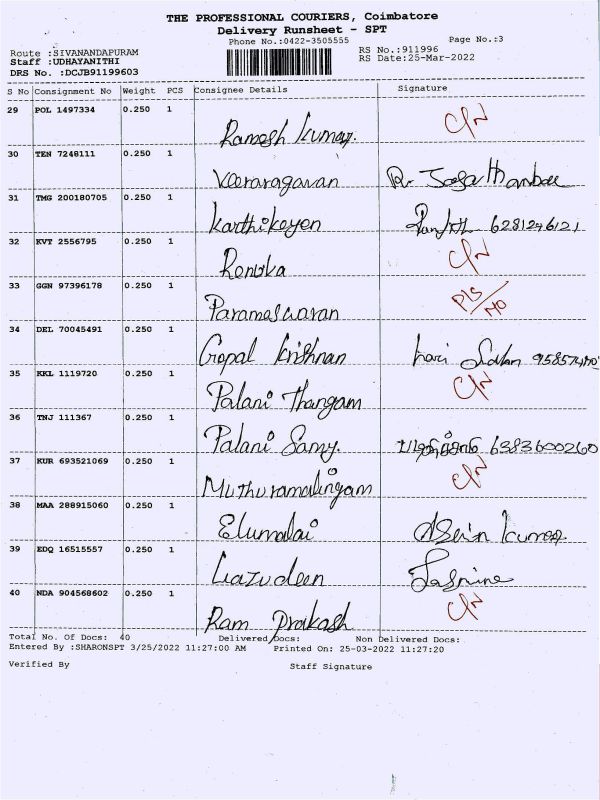 THE PROFESSIONAL COURIERS, Coimbatore
Delivery Runsheet - SPT
Phone No.:0422-3505555 Page No.:3
Route :SIVANANDAPURAM RS No.:911996
Staff :UDHAYANITHI RS Date:25-Mar-2022
DRS No. :DCJB91199603
S No Consignment No Weight PCS Consignee Details Signature
29 POL 1497334 0.250 1 Ramesh Kumar. C/N
30 TEN 7248111 0.250 1 Veeraragavan
31 TMG 200180705 0.250 1 Karthikeyen Ranjith 6281246121
32 KVT 2556795 0.250 1 Renuka C/N
33 GGN 97396178 0.250 1 Parameswaran P/S/NO
34 DEL 70045491 0.250 1 Gopal Krishnan hari
35 KKL 1119720 0.250 1 Palani Thangam C/N
36 TNJ 111367 0.250 1 Palani Samy. 6383600260
37 KUR 693521069 0.250 1 Muthuramalingam C/N
38 MAA 288915060 0.250 1 Elumalai Kumar
39 EDQ 16515557 0.250 1 Liazudeen Jasmine
40 NDA 904568602 0.250 1 Ram Prakash C/N
Total No. Of Docs: 40 Delivered Docs: Non Delivered Docs:
Entered By :SHARONSPT 3/25/2022 11:27:00 AM Printed On: 25-03-2022 11:27:20
Verified By Staff Signature